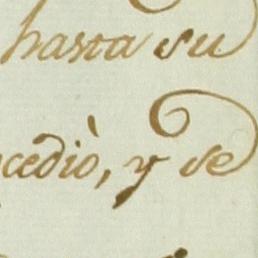 hasta su
cediò, y se